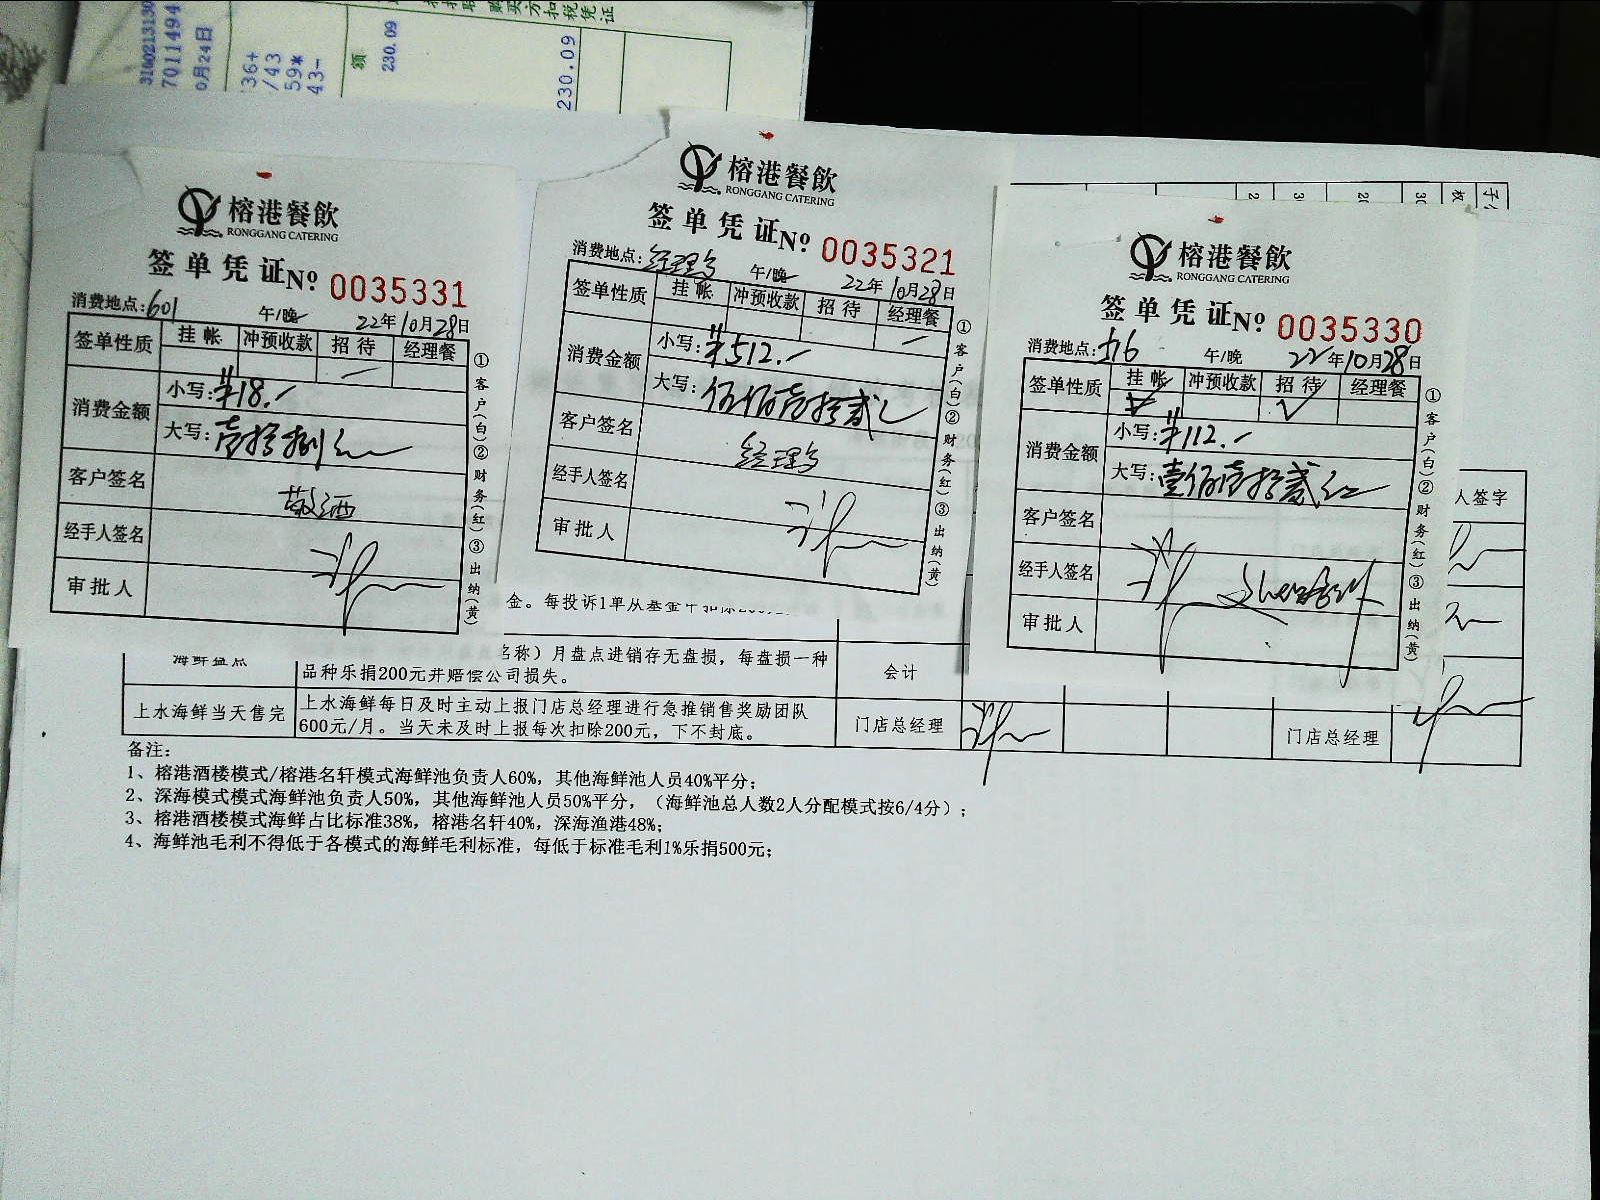 31002131130
7011494
0月24日
36+
/43
59*
43-
额
230.09
230.09
购买方扣税凭证
榕港餐飲
RONGGANG CATERING
签单凭证 Nº 0035331
消费地点:601 午/晚 22年10月28日
签单性质 挂帐 冲预收款 招待 经理餐
消费金额 小写:¥18.-
大写:壹拾捌元
客户签名 敬酒
经手人签名
审批人
①客户(白)②财务(红)③出纳(黄)
榕港餐飲
RONGGANG CATERING
签单凭证 Nº 0035321
消费地点:经理餐 午/晚 22年10月28日
签单性质 挂帐 冲预收款 招待 经理餐
消费金额 小写:¥512.-
大写:伍佰壹拾贰元
客户签名 经理餐
经手人签名
审批人
①客户(白)②财务(红)③出纳(黄)
榕港餐飲
RONGGANG CATERING
签单凭证 Nº 0035330
消费地点:516 午/晚 22年10月28日
签单性质 挂帐 冲预收款 招待 经理餐
消费金额 小写:¥112.-
大写:壹佰壹拾贰元
客户签名
经手人签名
审批人
①客户(白)②财务(红)③出纳(黄)
人签字
金。每投诉1单从基金中扣除200
海鲜盘点 名称）月盘点进销存无盘损，每盘损一种
品种乐捐200元并赔偿公司损失。 会计
上水海鲜当天售完 上水海鲜每日及时主动上报门店总经理进行急推销售奖励团队
600元/月。当天未及时上报每次扣除200元，下不封底。 门店总经理 门店总经理
备注：
1、榕港酒楼模式/榕港名轩模式海鲜池负责人60%，其他海鲜池人员40%平分；
2、深海模式模式海鲜池负责人50%，其他海鲜池人员50%平分，（海鲜池总人数2人分配模式按6/4分）；
3、榕港酒楼模式海鲜占比标准38%，榕港名轩40%，深海渔港48%；
4、海鲜池毛利不得低于各模式的海鲜毛利标准，每低于标准毛利1%乐捐500元；